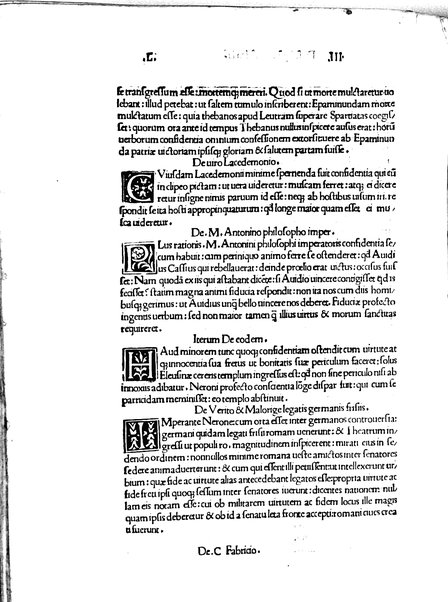 .L. .III.
se transgressum esse: mortemq; mereri. Quod si ut morte mulctaretur uo
lebant: illud petebat: ut saltem tumulo inscriberent: Epaminundam morte
mulctatum esse: quia thebanos apud Leutram superare Spartiatas coegis/
set: quorum ora ante id tempus Thebanus nullus inspicere ausus erat: horū
uerborum confidentia omnium confessionem extorsit uere ab Epaminun
da patriæ uictoriam ipsisq; gloriam & salutem partam fuisse.
De uiro Lacedemonio.
CViusdam Lacedemonii minime spernenda fuit confidentia qui cū
in clipeo pictam: ut uera uideretur: muscam ferret: atq; ei dicere
retur insigne nimis paruum id esse: neq; ab hostibus uisum iri. re
spondit se ita hosti appropinquaturum: qd longe maior quam esset ei mu/
sca uideretur.
De. M. Antonino philosopho imper.
PLus rationis. M. Antonini philosophi imperatoris confidentia se/
cum habuit: cum periniquo animo ferre se ostenderet: qd Auidi
us Cassius qui rebellauerat: deinde prœlio erat uictus: occisus fuis
set: Nam quodā ex iis qui astabant dicēte: si Auidio uincere contigisset qd is
fecisset? statim magna animi fiducia respondit: non ita nos cum diis homi/
busq; gerimus: ut Auidius unq̄ bello uincere nos deberet. Fiduciæ profecto
ingenus uerbum: sed non maior tamen q̄ illius uirtus & morum sanctitas
requireret.
Iterum De eodem.
HAud minorem tunc quoq; confidentiam ostendit cum uirtute at
q; innocentia sua fretus ut bonitatis suæ periculum faceret: solus
Eleusine cereris templum ingressus est: qd non sine periculo nisi ab
innoxiis adibatur. Neroni profecto conscientia lōge dispar fuit: qui cum se
parricidam meminisset: eo templo abstinuit.
De Verito & Malorige legatis germanis frisiis.
IMperante Nerone cum orta esset inter germanos controuersia:
germani quidam legati frisii romam uenerunt: & Theatrum in/
gressi ut populi ro. magnitudinem inspicerent: mirati eius in se/
dendo ordinem: nonnullos minime romana ueste amictos inter senatores
sedere animaduerterunt: & cum qui essent illi petiissent ut intellexerunt ur/
bium: quæ fide ac uirtute alias antecedebant legatos esse propria uirtute at
fide freti ipsi quoq; sessum inter senatores iuerunt: dicentes nationem nul
lam eis notam esse: cui ob militarem uirtutem ac fidem locus ille magis
quam ipsis deberetur & ob id a senatu læta fronte accepti romani ciues crea
ti fuerunt.
De. C Fabricio.